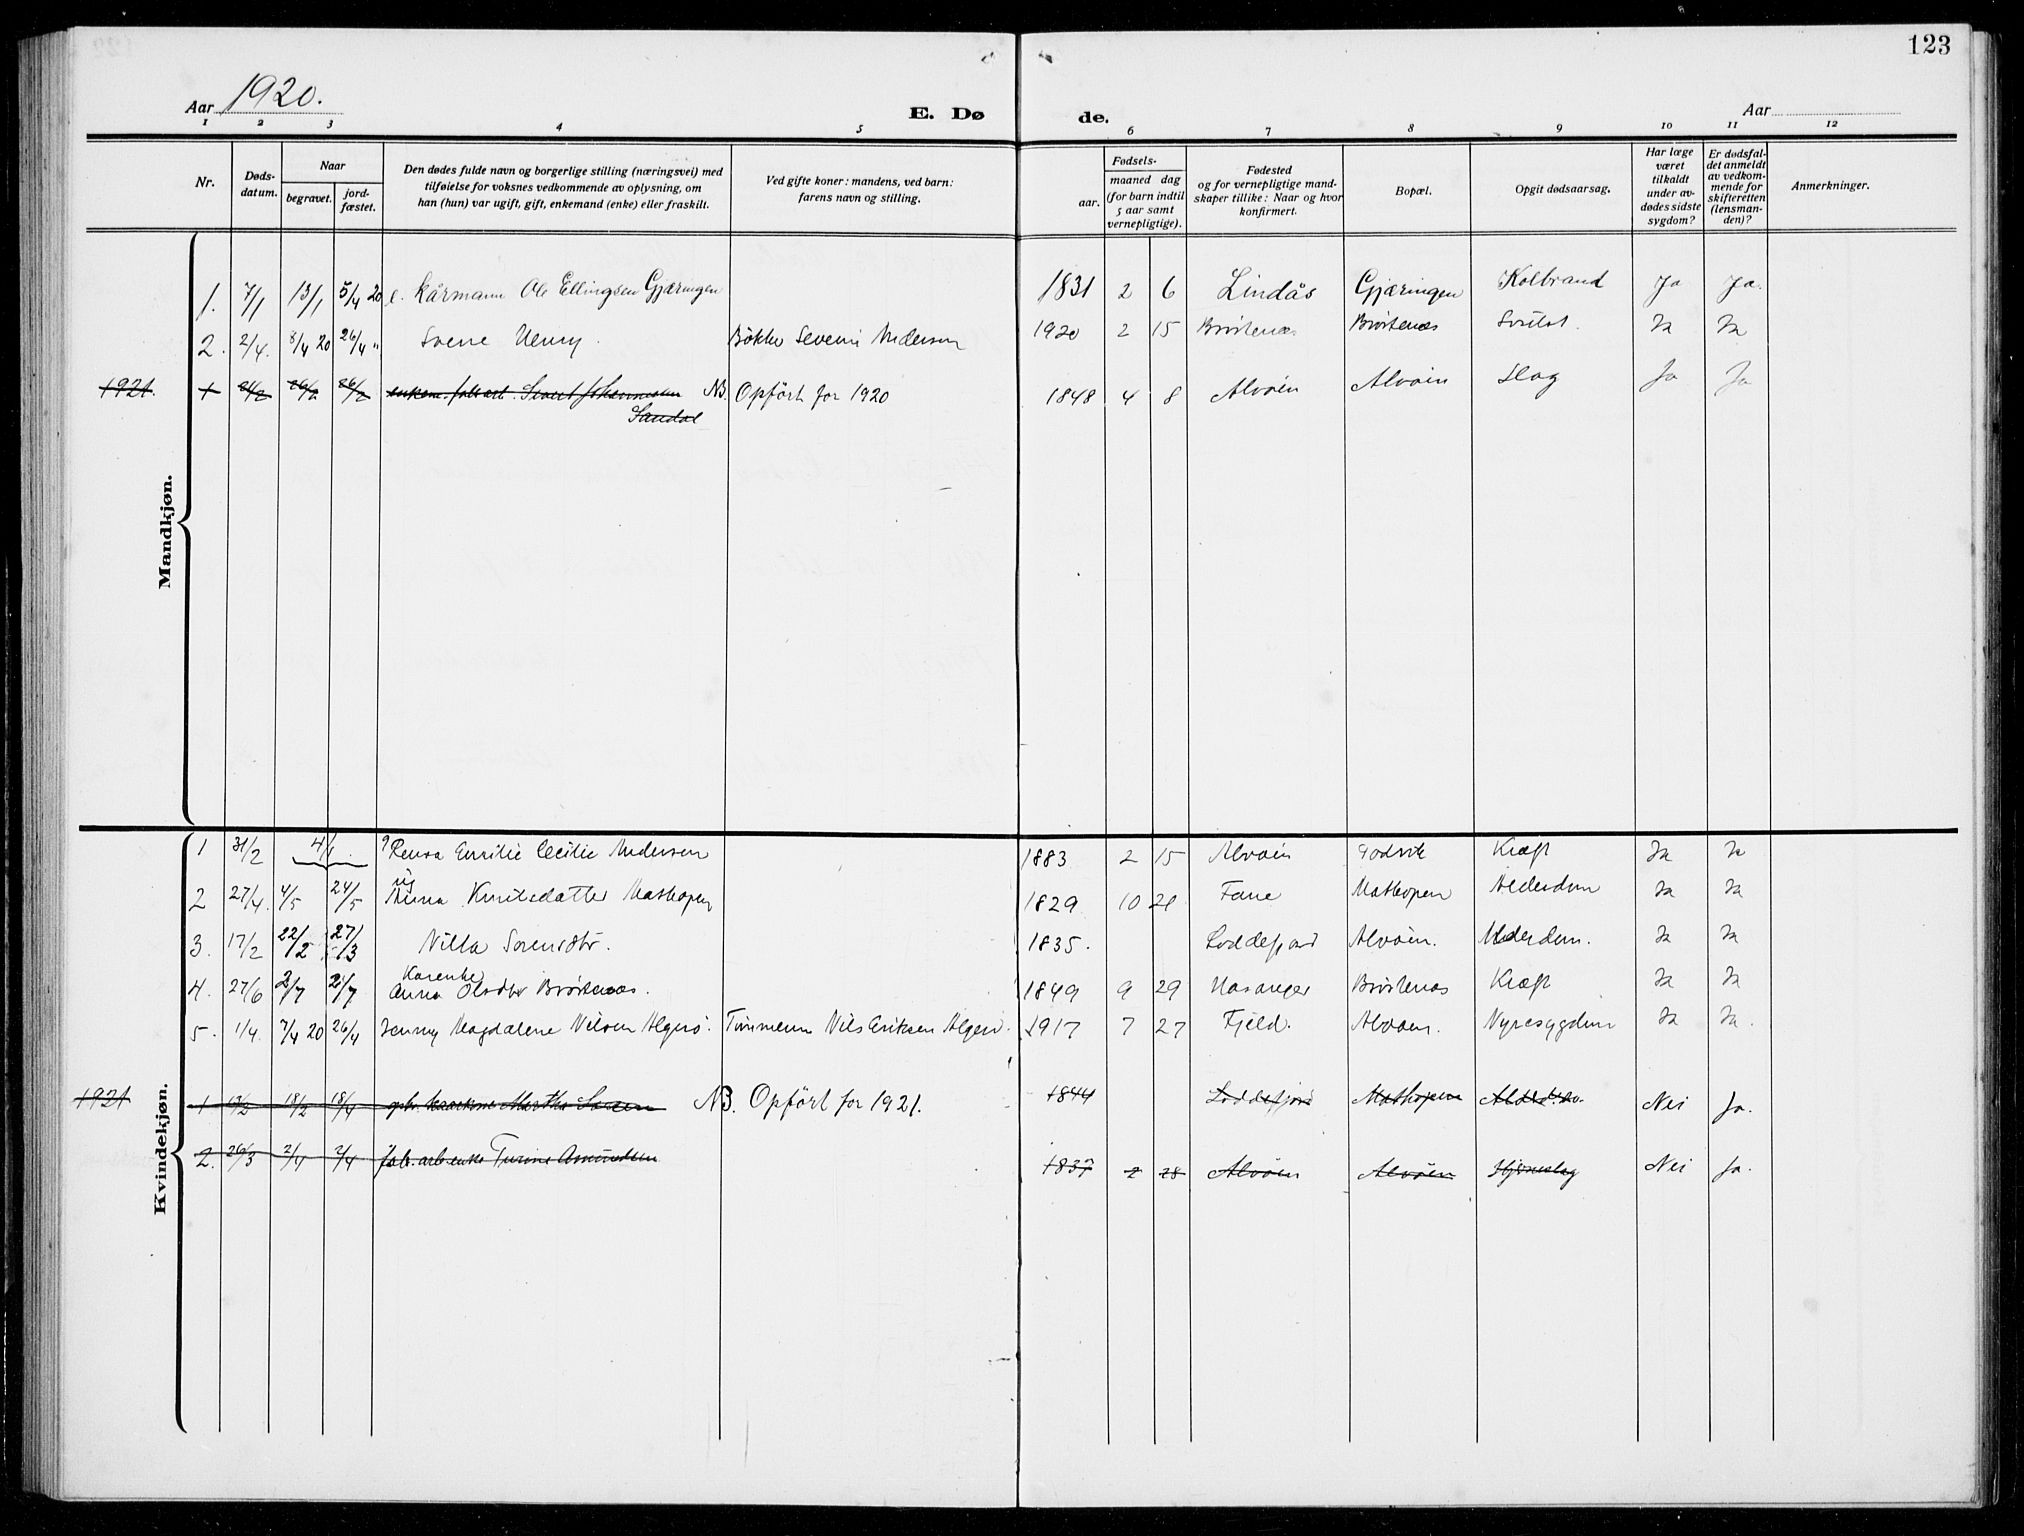 123
Aar 1920.
E. Døde.
Aar
1 2 3 4 5 6 7 8 9 10 11 12
Nr.
Døds-
datum.
Naar
begravet.
jord-
fæstet.
Den dødes fulde navn og borgerlige stilling (næringsvei) med
tilføielse for voksnes vedkommende av oplysning, om
han (hun) var ugift, gift, enkemand (enke) eller fraskilt.
Ved gifte koner: mandens, ved barn:
farens navn og stilling.
Fødsels-
aar.
maaned dag
(for barn indtil
5 aar samt
vernepligtige).
Fødested
og for vernepligtige mand-
skaper tillike: Naar og hvor
konfirmert.
Bopæl.
Opgit dødsaarsag.
Har læge
været
tilkaldt
under av-
dødes sidste
sygdom?
Er dødsfal-
det anmeldt
av vedkom-
mende for
skifteretten
(lensman-
den)?
Anmerkninger.
Mandkjøn.
1. 7/1 13/1 5/4 20 e. Kårmann Ole Ellingsen Gjæringen 1831 2 6 Lindås Gjæringen Kolbrand Ja Ja.
2. 2/4. 8/4 20 26/4 " Henry. Bøkker Severin Andersen 1920 2 15 Brøstenes Brøstenes Ja Ja
1921. 1 26/2 26/2 Johannesen NB. Opført for 1920 1848 4 8 Alvøen Alvøen Slag Ja Ja
Sandal
Kvindekjøn.
1 31/2 4/1 Emilie Cecilie Andersen 1883 2 15 Alvøen Godvik Kræft Ja Ja
ug
2 27/4. 4/5 24/5 Anna Knutsdatter Mathopen 1829 10 Fane Mathopen Alderdom Ja Ja
3. 17/2 22/2 27/3 Villa Sorensdtr. 1835. Loddefjord Alvøen. Alderdom. Ja Ja
Karenke
4. 27/6 2/7 2/7 Anna Olsdtr Brøstenes. 1849 9 29 Hasanger Brøstenes Kræft Ja Ja
5. 1/4. 7/4 20 26/4 Jenny Magdalene Nilsen Algerø. Timmerm Nils Eriksen Algerø. 1917 7 27 Fjeld. Alvøen. Nyresygdom Ja Ja.
1921 1 13/2 18/2 18/4 Martha NB. Opført for 1921. 1844 Loddefjord Mathopen Nei Ja.
2. 26/3 2/4 2/4 fabr.arb.enke Amundsen 1837 2 28 Alvøen Alvøen Hjerneslag Nei Ja.